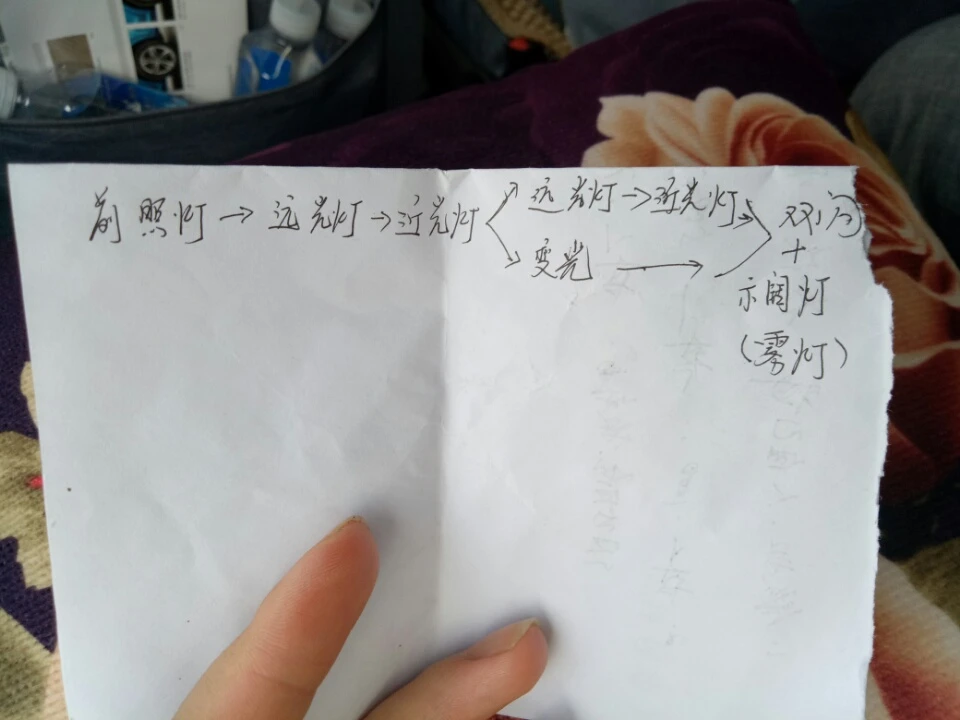 前照灯→远光灯→近光灯
远光灯→近光灯
变光
双闪
+
示阔灯
(雾灯)